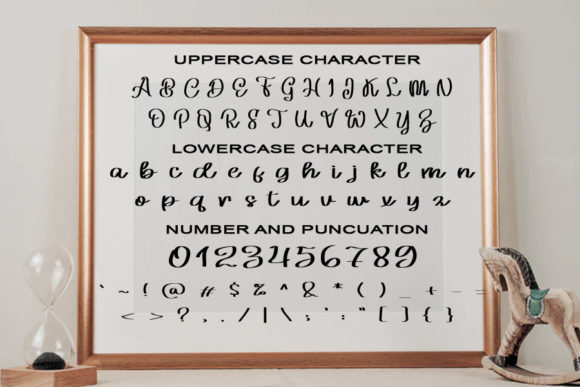 UPPERCASE CHARACTER
A B C D E F G H I J K L M N
O P Q R S T U V W X Y Z
LOWERCASE CHARACTER
a b c d e f g h i j k l m n
o p q r s t u v w x y z
NUMBER AND PUNCUATION
0123456789
` ~ ! @ # $ % ^ & * ( ) _ + - =
< > ? , . / | \ ; ' : " [ ] { }